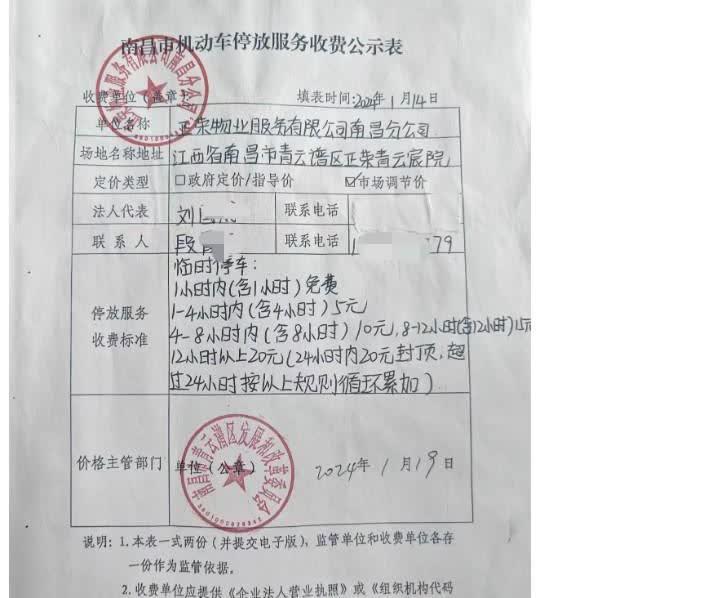 南昌市机动车停放服务收费公示表
收费单位（盖章） 填表时间:2024年1月14日
单位名称 正荣物业服务有限公司南昌分公司
场地名称地址 江西省南昌市青云谱区正荣青云宸院
定价类型 □政府定价/指导价 ☑市场调节价
法人代表 刘 联系电话
联系人 段 联系电话 179
停放服务收费标准
临时停车:
1小时内(含1小时)免费
1-4小时内(含4小时)5元
4-8小时内(含8小时)10元,8-12小时(含12小时)15元
12小时以上20元(24小时内20元封顶,超
过24小时按以上规则循环累加)
价格主管部门 单位(公章) 2024年1月19日
南昌市青云谱区发展和改革委员会
说明: 1.本表一式两份(并提交电子版),监管单位和收费单位各存
一份作为监管依据。
2.收费单位应提供《企业法人营业执照》或《组织机构代码